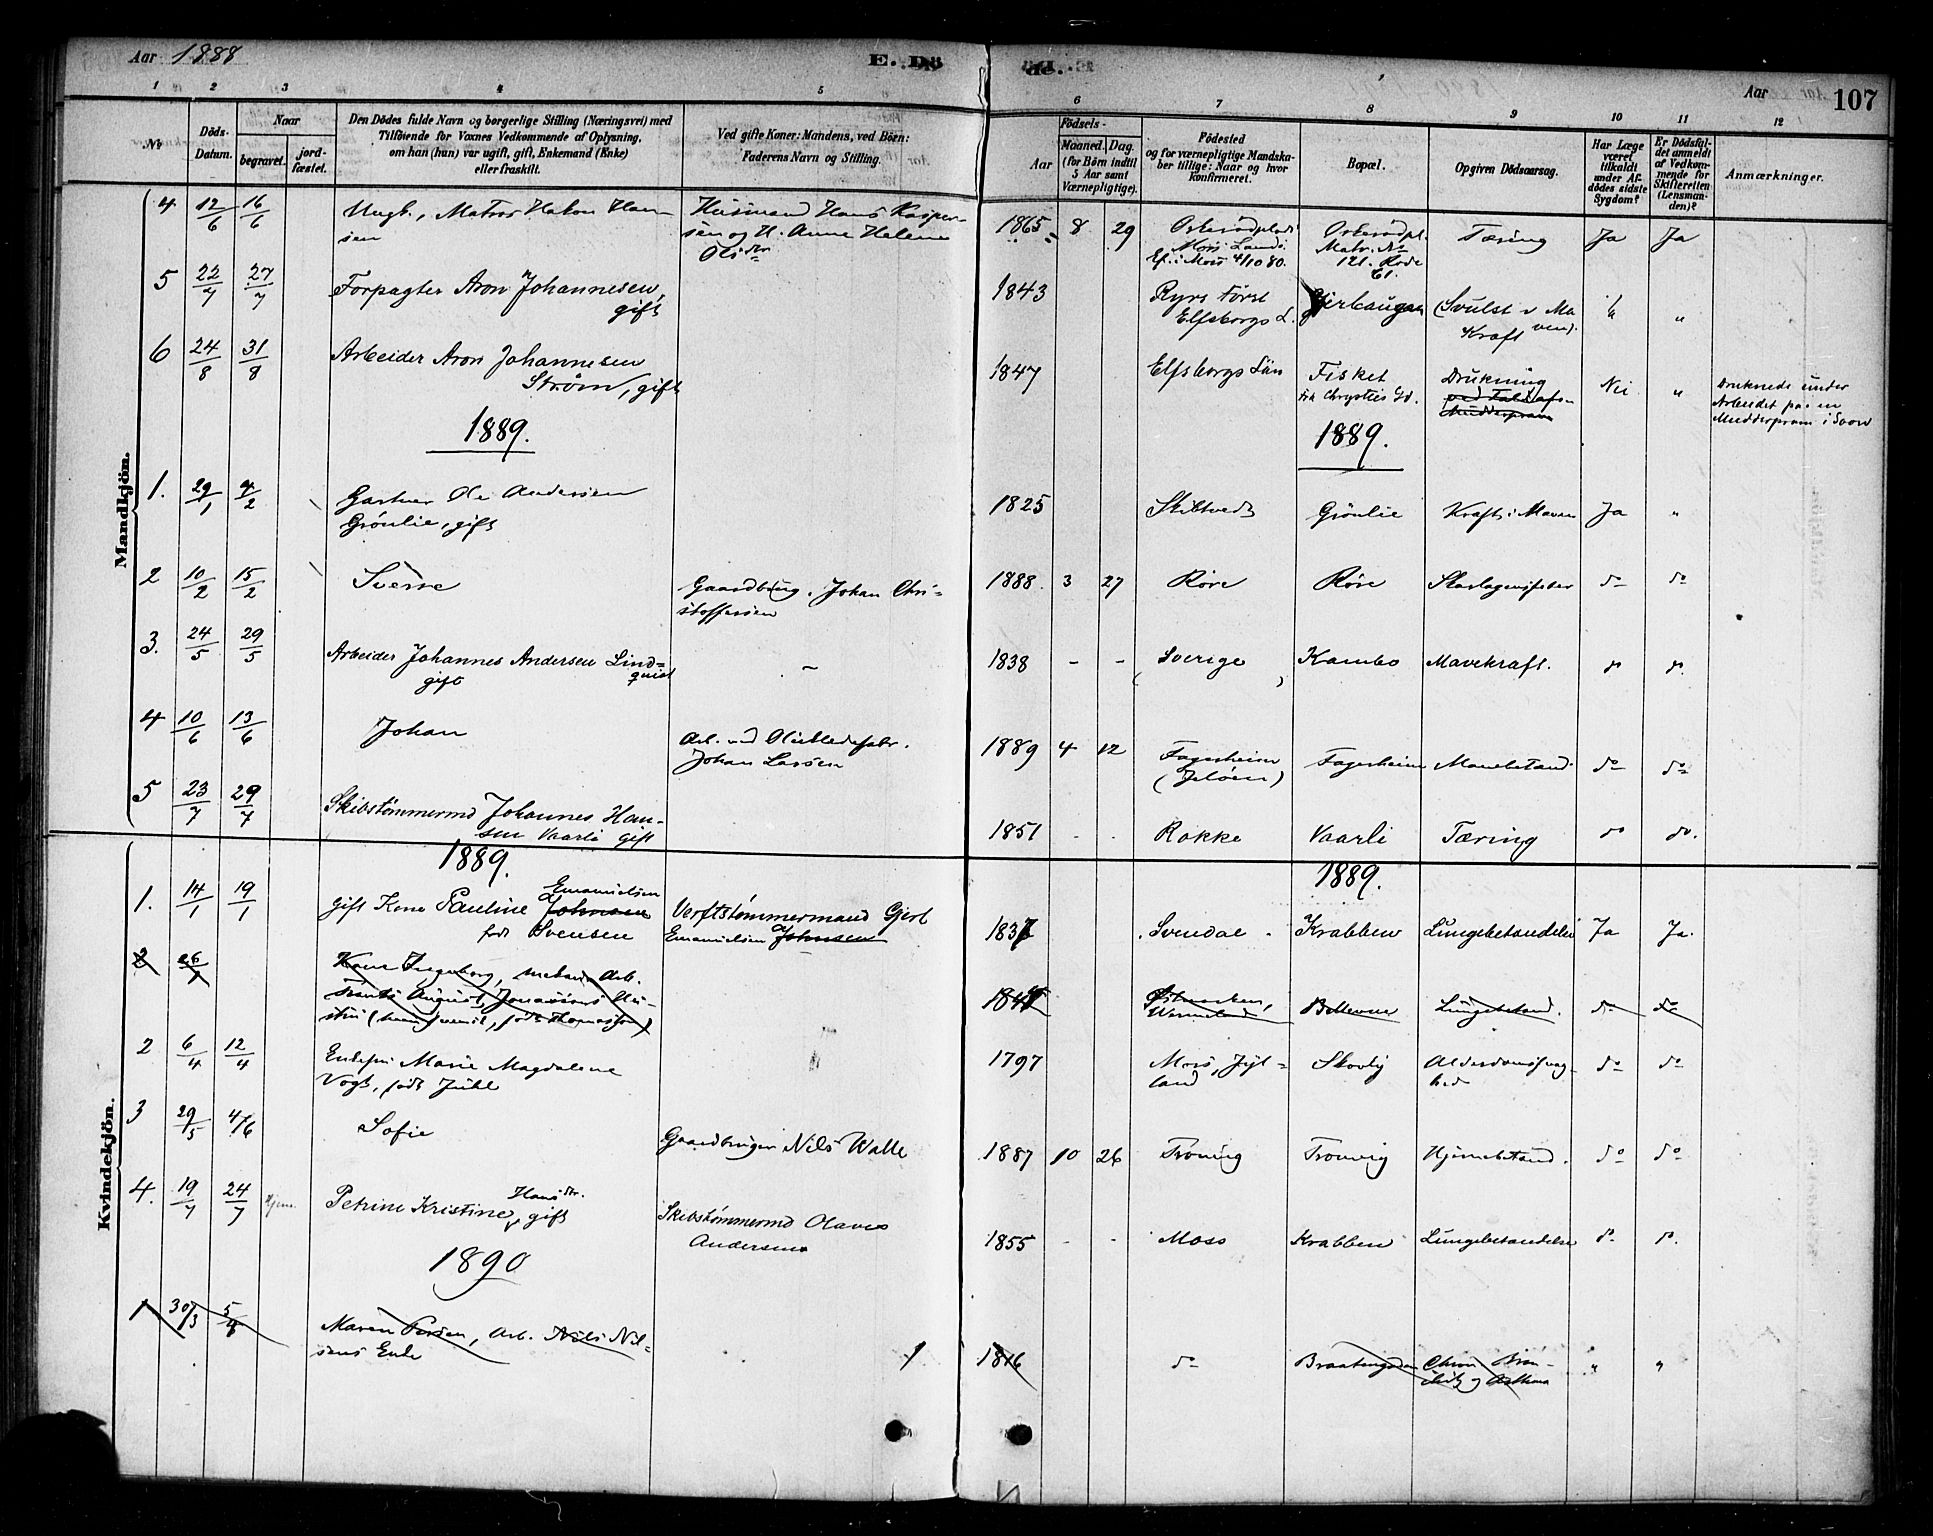 Aar 1888 E. Dö
de. Aar 107
1 2 3 4 5 6 7 8 9 10 11 12
No
Döds-Datum.
Naar
begravet. jordfæstet.
Den Dödes fulde Navn og borgerlige Stilling (Næringsvei) med
Tilföiende for Voxnes Vedkommende af Oplysning,
om han (hun) var ugift, gift, Enkemand (Enke)
eller fraskilt.
Ved gifte Koner: Mandens, ved Börn:
Faderens Navn og Stilling.
Födsels-
Aar Maaned. Dag.
(for Börn indtil
5 Aar samt
Værnepligtige).
Födested
og for værnepligtige Mandska-
ber tillige: Naar og hvor
konfirmeret.
Bopæl.
Opgiven Dödsaarsag.
Har Læge
været
tilkaldt
under Af-
dödes sidste
Sygdom?
Er Dödsfal-
det anmeldt
af Vedkom-
mende for
Skifteretten
(Lensman-
den)?
Anmærkninger.
Mandkjön.
4 12/6 16/6 Ungk., Matros Hakon Han-
sen
Husmand Hans Kasper-
sen og H. Anne Helene
Olsdtr
1865 8 29 Orkerödplads
Moss Lands.
Ef. i Moss 4/10 80.
Orkerödpl.
Matr. No
121. Rode
61.
Tæring Ja Ja
5 22/7 27/7 Forpagter Aron Johannesen,
gift
1843 Ryrs
Elfsborgs L.
(Svulst i Ma
ven).
Kraft " "
6 24/8 31/8 Arbeider Aron Johannesen
Strøm, gift
1847 Elfsborgs Län Fisket
Drukning
ved Fald af en
Mudderpram
Nei "
Druknede under
Arbeidet paa en
Mudderpram i Soon
1889. 1889.
1. 29/1 4/2 Gartner Ole Andersen
Grönlie, gift
1825 Skibtvedt Grönlie Kræft i Maven Ja "
2 10/2 15/2 Sverre
Gaardbrug. Johan Chri-
stoffersen
1888 3 27 Röre Röre Skarlagensfeber do do
3. 24/5 29/5 Arbeider Johannes Andersen Lind-
quist
gift –
1838 - - Sverige Kambo Mavekraft. do do
4 10/6 13/6 Johan
Arb. ved Oliekledefabr.
Johan Larsen
1889 4 12 Fagerheim
(Jeløen)
Fagerheim Mavebetænd. do do
5 23/7 29/7 Skibstømmermd Johannes Han-
sen Vaarli gift
1851 - - Rakke Vaarli Tæring do do.
Kvindekjön.
1889. 1889.
1. 14/1 19/1 gift Kone Pauline Johnsen Emanuelsen
født Svensen
Verftstømmermand Gjert
Emanuelsen Johnsen
1837 Svendal Krabben Lungebetændelse Ja Ja.
2 26/1 Kone Ingeborg, Arb.
August
1841
Wermeland
Bellevue Lungebetænd. do do
2 6/4 12/4 Enkefru Marie Magdalene
Vogt, født Juhl
1797 Mors, Jyl-
land
Skovly Alderdomssvag-
hed
do do
3 29/5 4/6 Sofie
Gaardbruger Nils Walle
1887 10 26 Trönvig Tronvig Hjernebetænd. do do
4. 19/7 24/7 Hjem. Petrine Kristine Hansdtr. gift
Skibstømmermd Olaves
Andersen
1855 - - Moss Krabben Lungebetændelse do do.
1890
1 30/3 5/4 Maren Persen, Arb. Nils Nil-
sens Enke
1
1816 do Braatengaden Chron. Bron-
chit og Asthma
" "